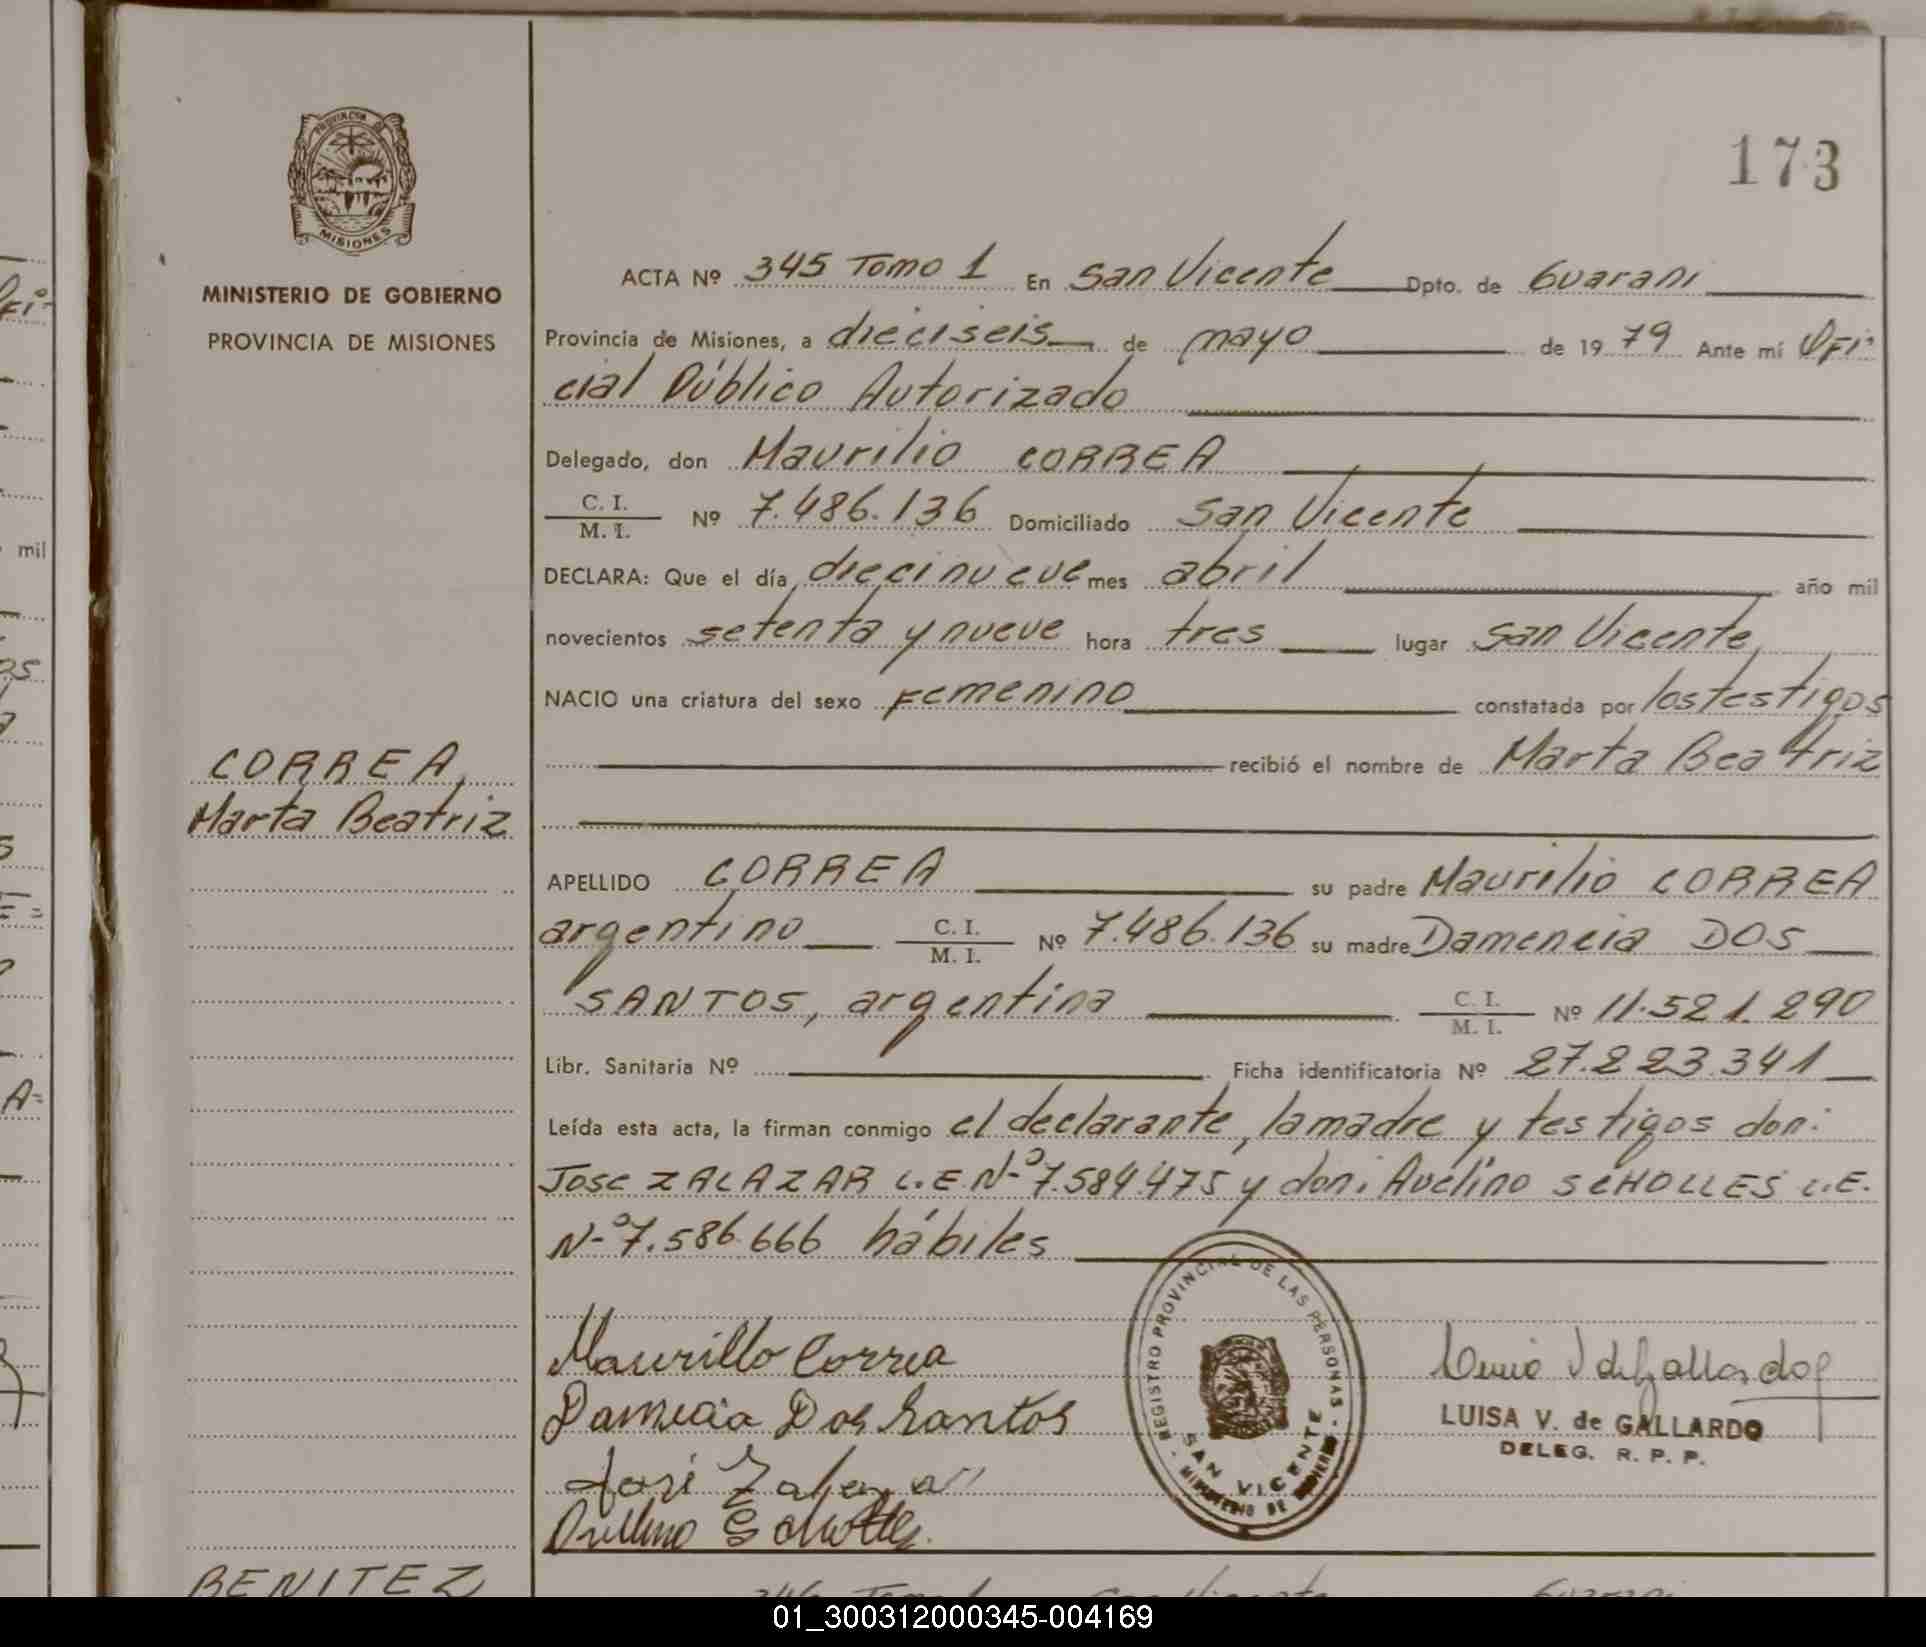 173
PROVINCIA DE
MISIONES
MINISTERIO DE GOBIERNO
PROVINCIA DE MISIONES
ACTA Nº 345 Tomo 1 En San Vicente Dpto. de Guarani
Provincia de Misiones, a dieciseis de mayo de 19 79 Ante mí Ofi-
cial Público Autorizado
Delegado, don Maurilio CORREA
C. I.
M. I. Nº 7.486.136 Domiciliado San Vicente
DECLARA: Que el día diecinueve mes abril año mil
novecientos setenta y nueve hora tres lugar San Vicente,
NACIO una criatura del sexo Femenino constatada por los testigos
recibió el nombre de Marta Beatriz
CORREA,
Marta Beatriz
APELLIDO CORREA su padre Maurilio CORREA
argentino C. I. M. I. Nº 7.486.136 su madre Damencia DOS
SANTOS, argentina C. I. M. I. Nº 11.521.290
Libr. Sanitaria Nº Ficha identificatoria Nº 27.223.341
Leída esta acta, la firman conmigo el declarante, la madre y testigos don:
Jose ZALAZAR L.E.Nº 7.584.475 y don: Avelino SCHOLLES L.E.
Nº 7.586.666 hábiles
Maurillo Correa
Dos Santos
José
REGISTRO PROVINCIAL DE LAS PERSONAS
SAN VICENTE
MINISTERIO DE GOBIERNO
LUISA V. de GALLARDO
DELEG. R. P. P.
BENITEZ
346 Tomo 1 San Vicente Guarani
01_300312000345-004169